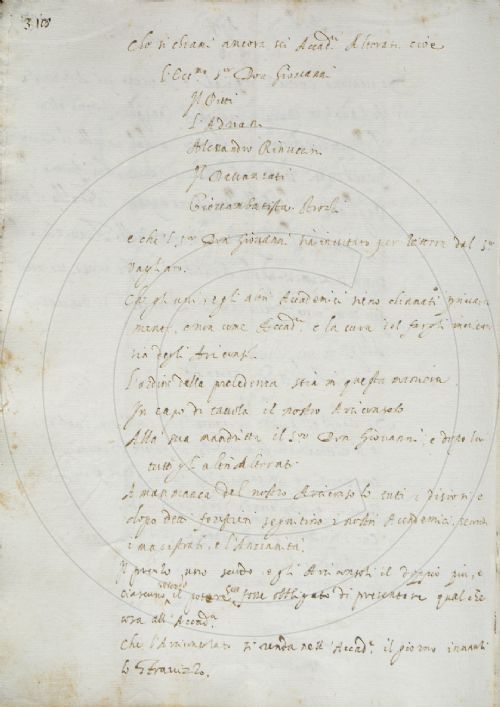 310
Che si chiami ancora sei Accad.ⁱ Alterati cioè
l'Ecc.ᵐᵒ s.ʳ Don Giovanni
Il Pitti
L'Adriani
Alessandro Rinuccini
Il Davanzati
Giovambatista Strozzi
e che'l s.ʳ Don Giovanni sia invitato per lettere dal s.ʳ
Vagliaio.
Che gl'altri Accademici sieno chiamati privata
mente, e non come Accad.ⁱ e la cura
degli Arciconsoli.
L'ordine della precedenza stia in questa maniera
In capo di tavola il nostro Arciconsolo
Alla sua man dritta il s.ʳ Don Giovanni, e dopo lui
tutti gli altri Alterati.
A man manca del nostro Arciconsolo tutti i
dopo detti forestieri seguitino i nostri Accademici, secondo
i magistrati, e l'Anzianità.
Il prezzo uno scudo, e gli Arciconsoli il doppio più, e
ciascuno il potere sia obbligato di presentare qual che
cosa all'Accad.ᵃ
Che l'Arciconsolato si renda nell'Accad.ᵃ il giorno innanzi
lo Stravizzo.